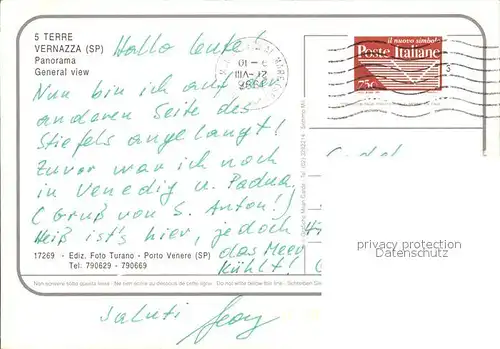 5 TERRE
VERNAZZA (SP)
Panorama
General view
Hallo Leute!
Nun bin ich auf der
anderen Seite des
Stiefels angelangt!
Zuvor war ich noch
in Venedig u. Padua.
(Gruß von S. Anton!)
Heiß ist's hier, jedoch
das Meer
kühlt!
17269 - Ediz. Foto Turano - Porto Venere (SP)
Tel: 790629 - 790669
Non scrivere sotto questa linea - Ne rien écrire au dessous de cette ligne - Do not write below this line - Schreiben Sie
Saluti Georg
il nuovo simbolo
Poste Italiane
750
privacy protection
Datenschutz